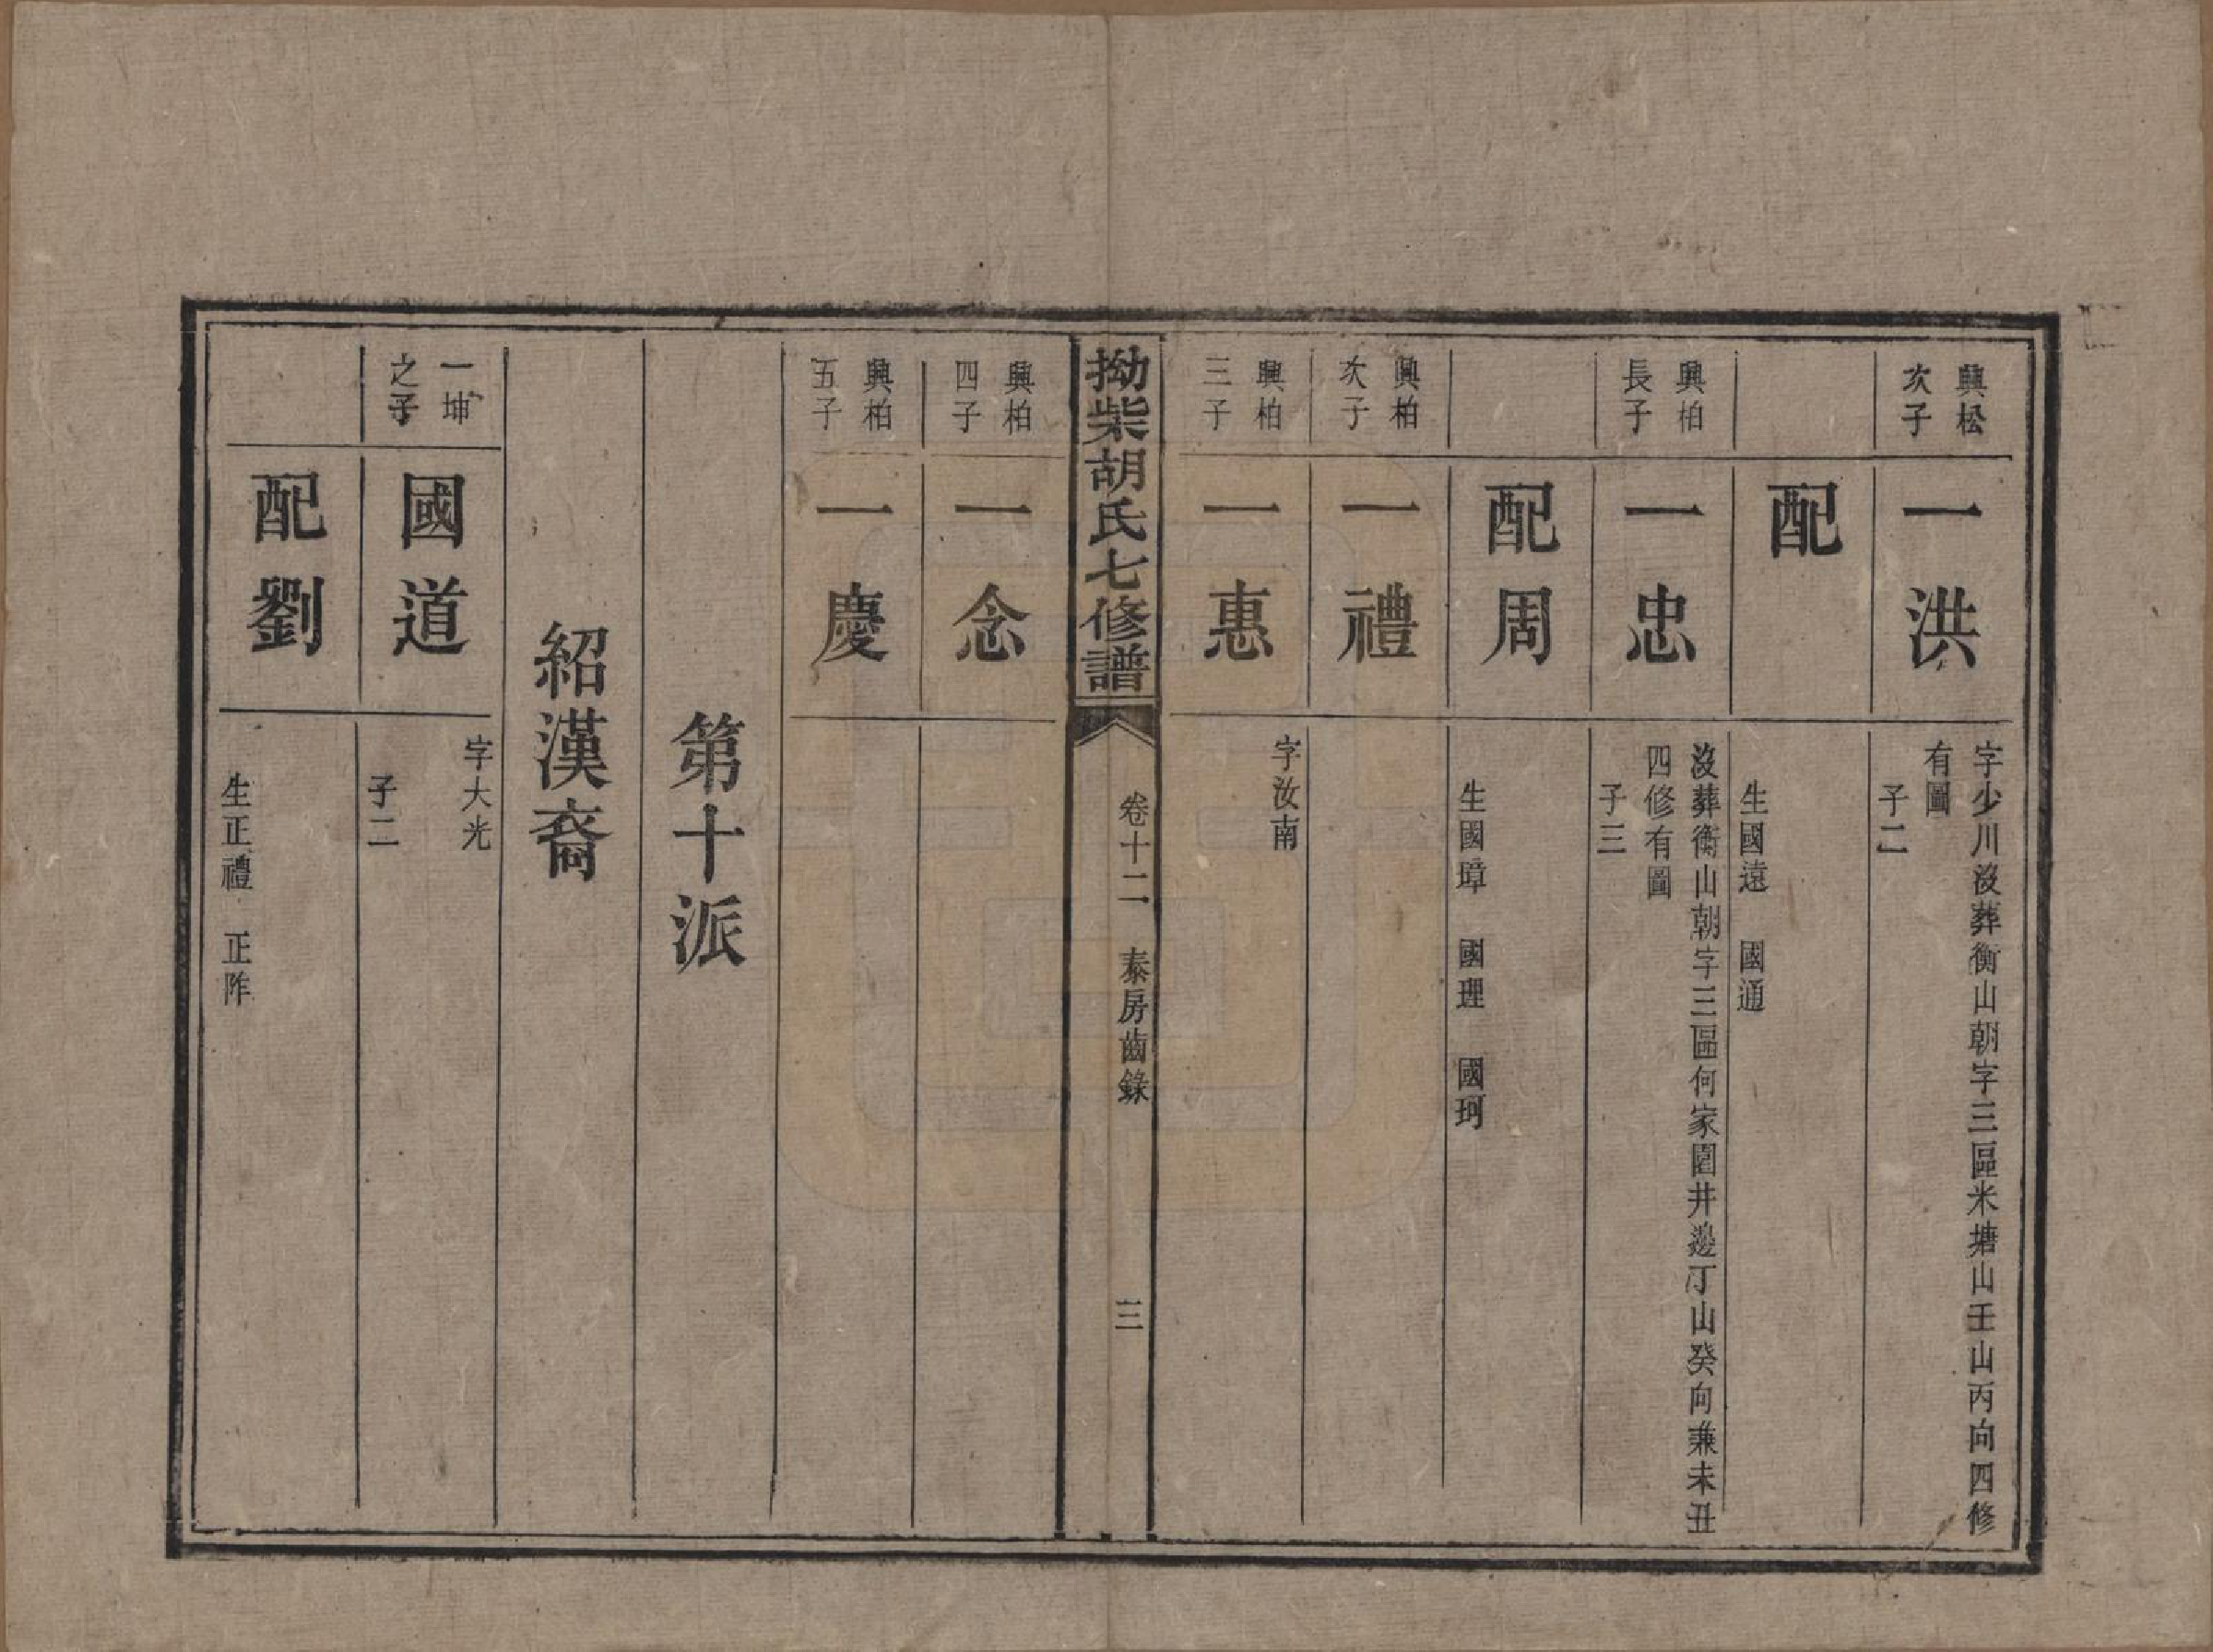 興松
次子
一洪
字少川沒葬衡山朝字三區米塘山壬山丙向四修
有圖
子二
配
生國遠 國通
興柏
長子
一忠
沒葬衡山朝字三區何家園井邊丁山癸向兼未丑
四修有圖
子三
配周
生國璋 國理 國珂
興柏
次子
一禮
興柏
三子
一惠
字汝南
拗柴胡氏七修譜
卷十二 泰房齒錄
三
興柏
四子
一念
興柏
五子
一慶
第十派
紹漢裔
一坤
之子
國道
字大光
子二
配劉
生正禮 正阼